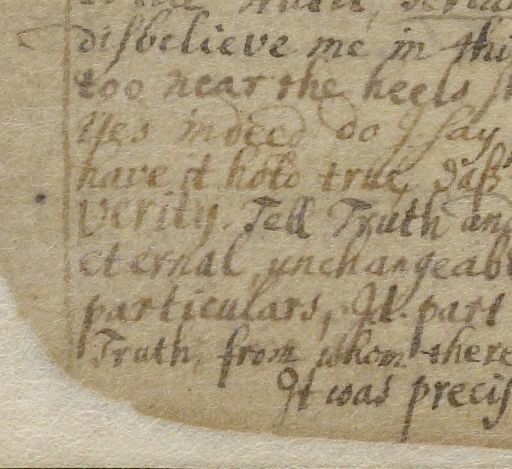 disbelieve me in thi
too near the heels
Yes indeed do I say
have it hold true, daß
Verity. Tell Truth and
eternal, unchangeabl
particulars, Id. part
Truth, from whom there
It was precis